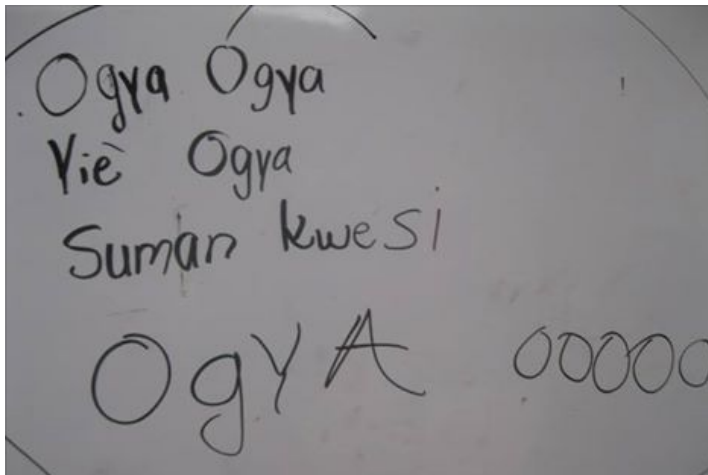 Ogya Ogya
Yiè Ogya
Suman kwesi
OgYA OOOOO